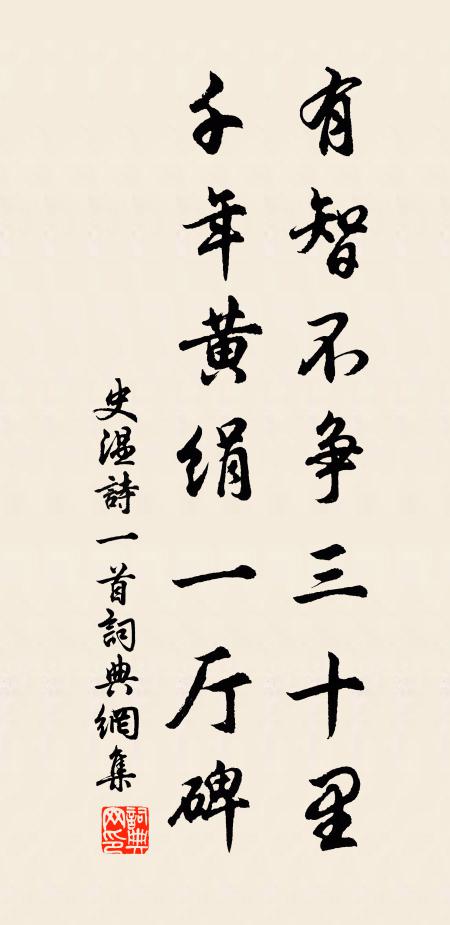 有智不争三十里
千年黄绢一厅碑
史温詩一首詞典網集
詞典網印